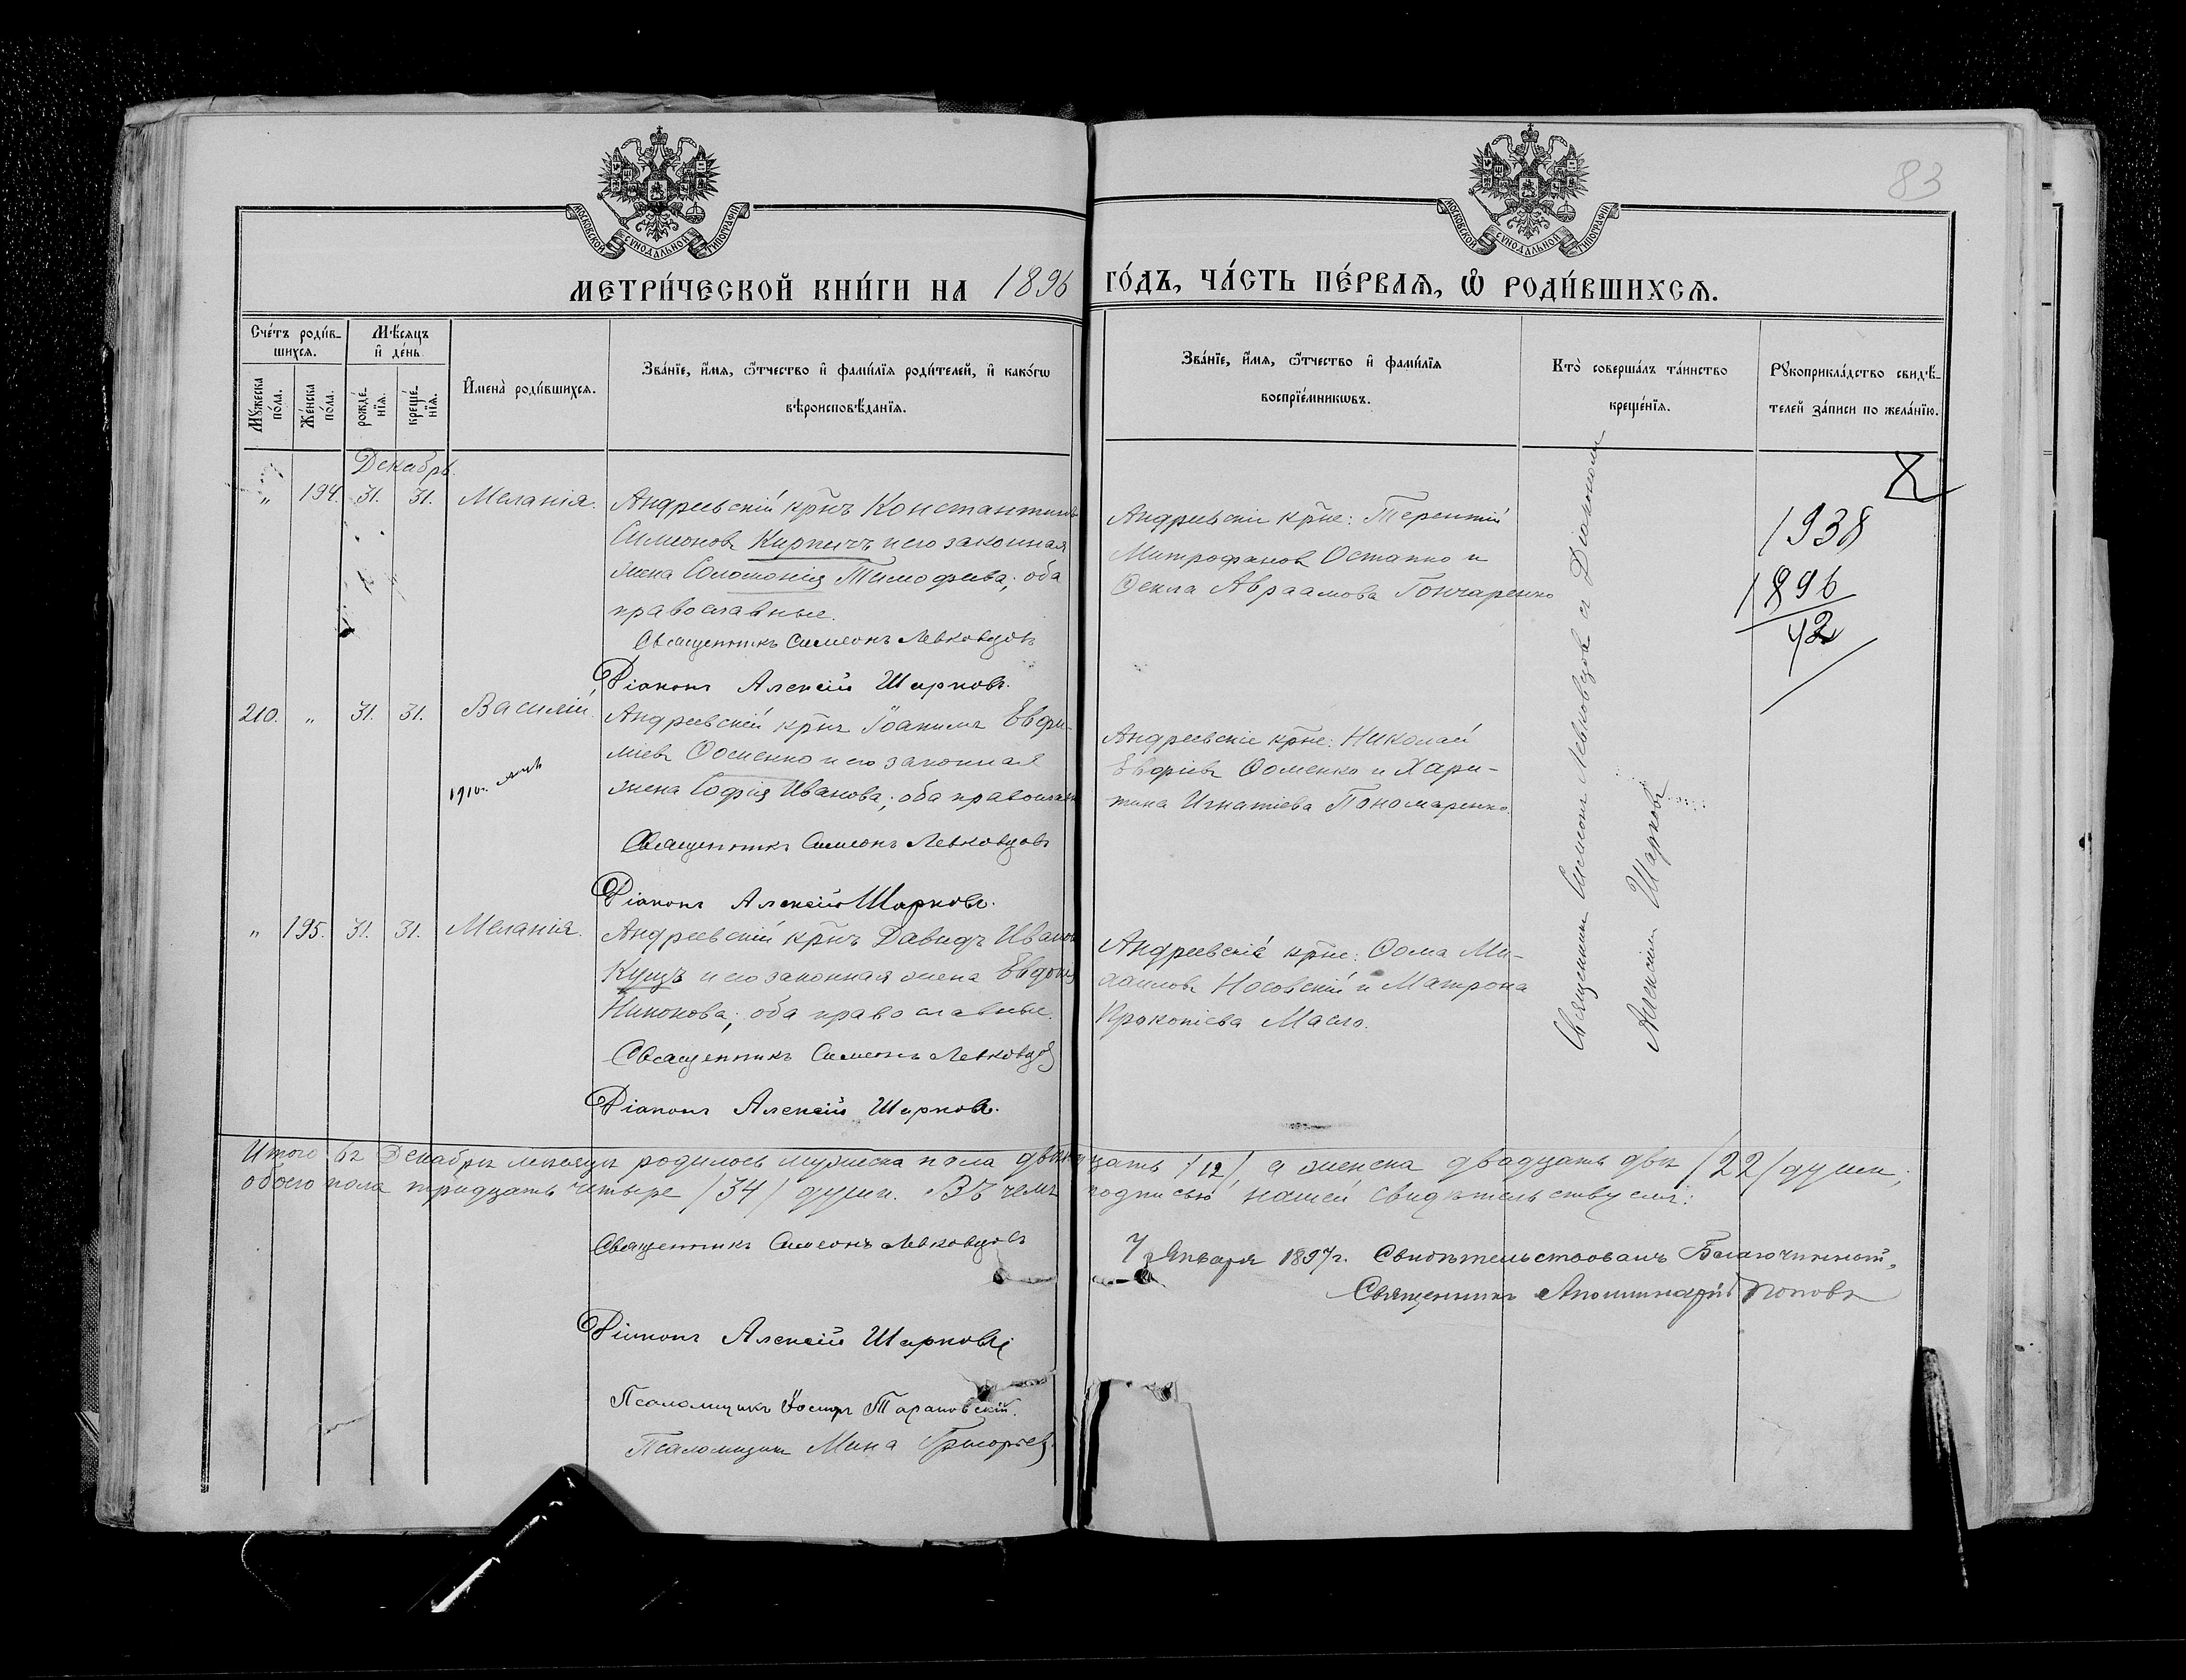 83
МОСКОВСКОЙ СѴНОДАЛЬНОЙ ТИПОГРАФІИ
МОСКОВСКОЙ СѴНОДАЛЬНОЙ ТИПОГРАФІИ
МЕТРИ́ЧЕСКОЙ КНИ́ГИ НА 1896 ГО́ДЪ, ЧА́СТЬ ПЕ́РВАѦ, Ѡ҆ РОДИ́ВШИХСѦ.
Сче́тъ роди́в-
шихсѧ.
Мѣ́сѧцъ
и҆ де́нь.
Мꙋ́жеска
по́ла.
Же́нска
по́ла.
рожде́-
нїѧ.
креще́-
нїѧ.
И҆мена̀ роди́вшихсѧ.
Зва́нїе, и҆́мѧ, ѻ҆́тчество и҆ фамѝлїѧ роди́телей, и҆ како́гѡ
вѣроисповѣ́данїѧ.
Зва́нїе, и҆́мѧ, ѻ҆́тчество и҆ фамѝлїѧ
воспрїе́мникѡвъ.
Кто̀ соверша́лъ та́инство
креще́нїѧ.
Рꙋкоприкла́дство свидѣ́-
телей за́писи по жела́нїю.
Декабрь
" 194. 31. 31. Меланія.
Андреевскій крнъ Константинъ
Симеоновъ Кирпичъ и его законная
жена Соломонія Тимофеева; оба
православные.
Священникъ Симеонъ Левковцовъ
Діаконъ Алексій Шарковъ.
Андреевскіе крне: Терентій
Митрофановъ Остапко и
Ѳекла Авраамова Гончаренко
1938
1896
42
210. " 31. 31. Василій.
1910г.
Андреевскій крнъ Іоакимъ Евфи-
міевъ Ѳоменко и его законная
жена Софія Иванова; оба православн
Священникъ Симеонъ Левковцовъ
Діаконъ Алексій Шарковъ.
Андреевскіе крне: Николай
Ѳоменко и Хари-
тина Игнатіева Пономаренко.
" 195. 31. 31. Меланія.
Андреевскій крнъ Давидъ Иванов
Куцъ и его законная жена Евдокія
оба православные.
Священникъ Симеонъ Левковцовъ
Діаконъ Алексій Шарковъ.
Андреевскіе крне: Ѳома Ми-
хаиловъ Носовскій и Матрона
Прокопіева Масло.
Священникъ Симеонъ Левковцовъ и Діаконъ
Алексій Шарковъ
Итого въ Декабрѣ мѣсяцѣ родилось мужеска пола двѣнадцать /12/, а женска двадцать двѣ /22/ души;
обоего пола тридцать четыре /34/ души. Въ чемъ подписью нашей свидѣтельствуемъ:
Священникъ Симеонъ Левковцовъ
Діаконъ Алексій Шарковъ
Псаломщикъ Іосифъ Тарановскій.
Псаломщикъ Мина Григорьев
7 Января 1897г. Свидѣтельствовалъ Благочинный,
Священникъ Аполлинарій Поповъ